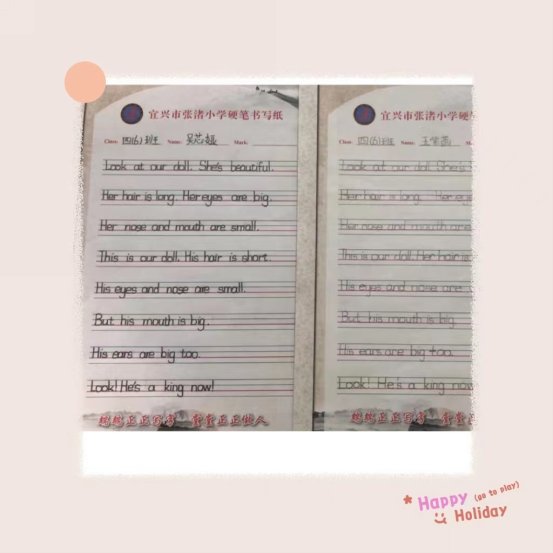 宜兴市张渚小学硬笔书写纸
Class: 四(6)班 Name: Mark:
Look at our doll. She's beautiful.
Her hair is long. Her eyes are big.
Her nose and mouth are small.
This is our doll. His hair is short.
His eyes and nose are small.
But his mouth is big.
His ears are big too.
Look! He's a king now!
端端正正写字 堂堂正正做人
宜兴市张渚小学硬笔
Class: 四(6)班 Name:
Look at our doll. She's
Her hair is long. Her eye
Her nose and mouth are
This is our doll. Her hair is
His eyes and nose are
But his mouth is big.
His ears are big too.
Look! He's a king now
端端正正写字 堂堂
* Happy (go to play)
Holiday